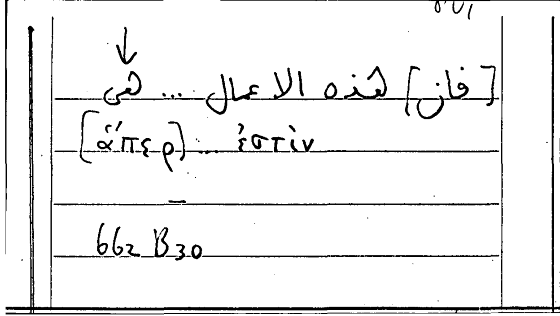 [فان] هذه الاعمال ... هى
[ἅπερ] ... ἐστὶν
662 B 30